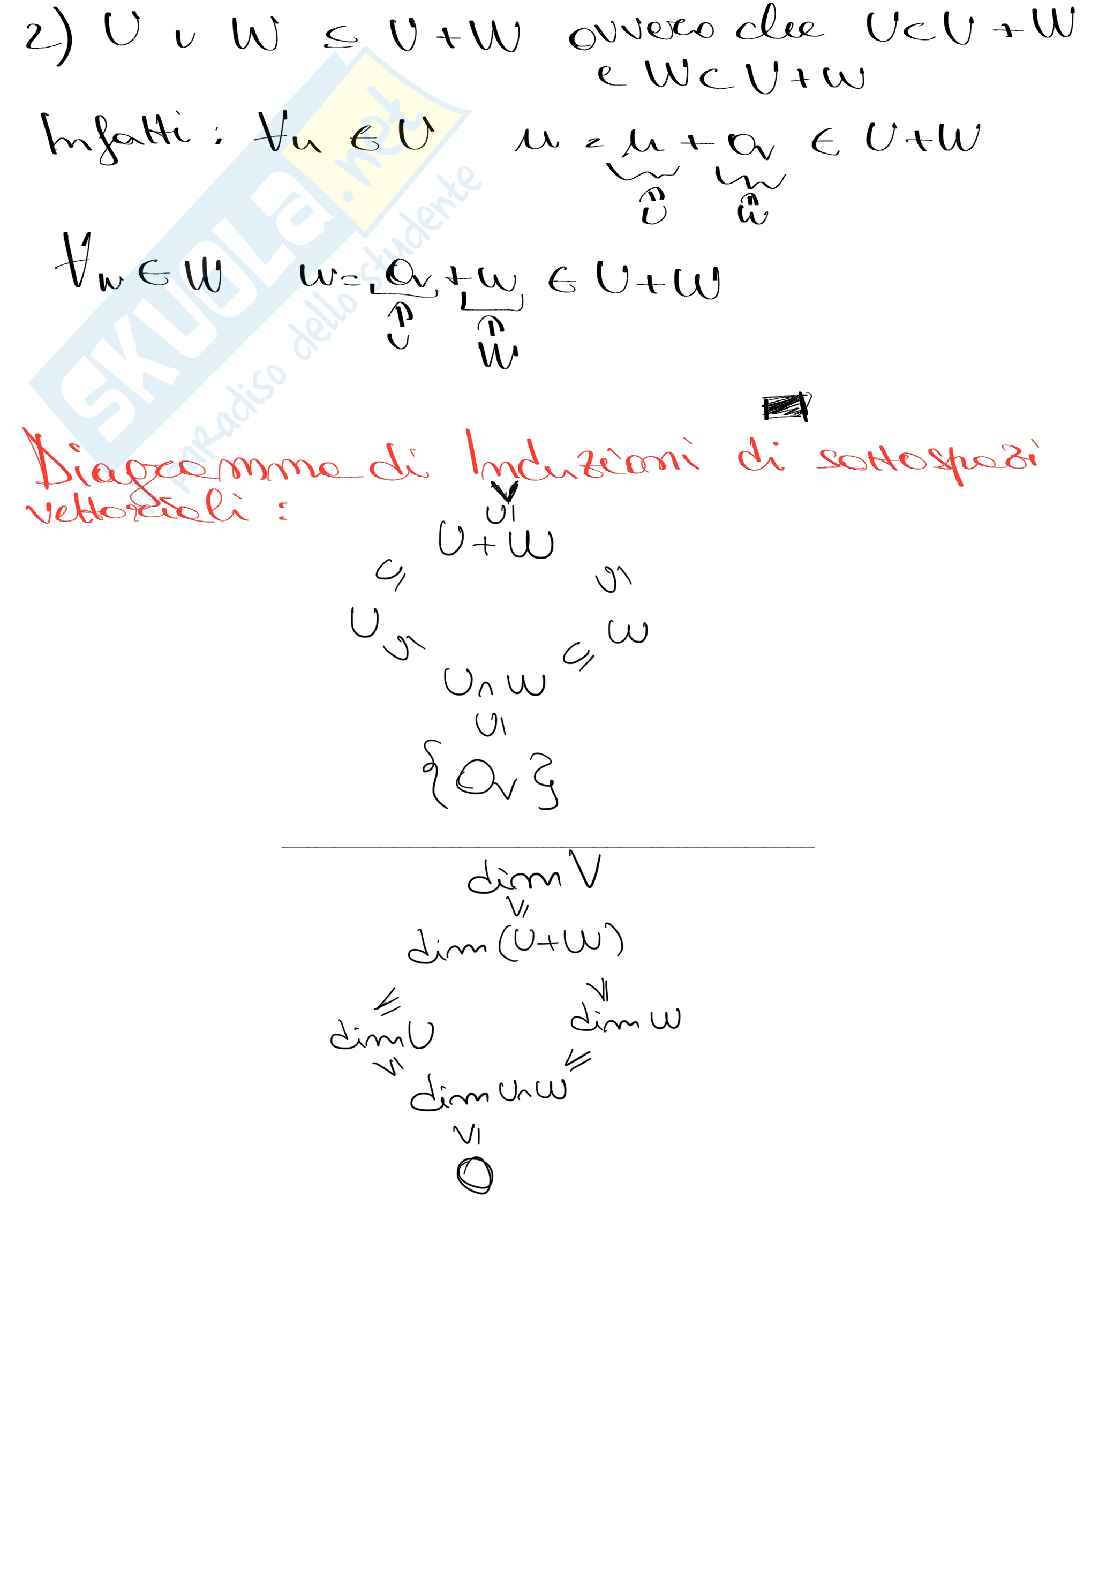 2) U ∪ W ⊆ U+W ovvero che U⊂U+W
e W⊂U+W
Infatti: ∀u ∈ U u = u + 0v ∈ U+W
∩ ∩
U W
∀w ∈ W w = 0v + w ∈ U+W
∩ ∩
U W
SKUOLA.net
paradiso dello studente
Diagramma di Induzioni di sottospazi
vettoriali:
V
∪|
U+W
⊆ ∪|
U W
∪| ⊆
U∩W
∪|
{0v}
dim V
V|
dim(U+W)
≤ V|
dim U dim W
V| ≤
dim U∩W
V|
0